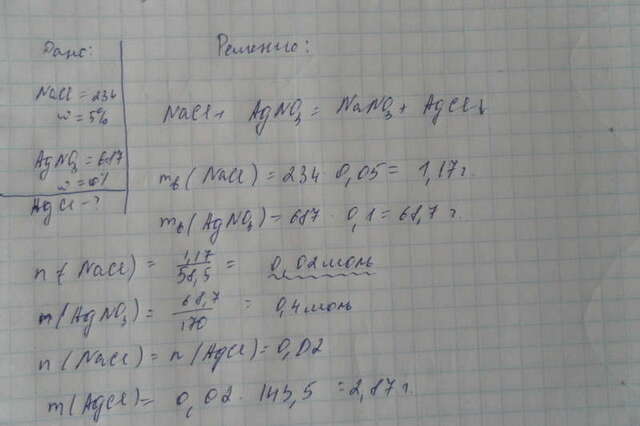 Дано:
NaCl = 234
w = 5%
AgNO3 = 687
w = 10%
AgCl - ?
Решение:
NaCl + AgNO3 = NaNO3 + AgCl↓
mв (NaCl) = 234 · 0,05 = 1,17 г.
mв (AgNO3) = 687 · 0,1 = 68,7 г.
n (NaCl) = 1,17/58,5 = 0,02 моль
n (AgNO3) = 68,7/170 = 0,4 моль
n (NaCl) = n (AgCl) = 0,02
m (AgCl) = 0,02 · 143,5 = 2,87 г.